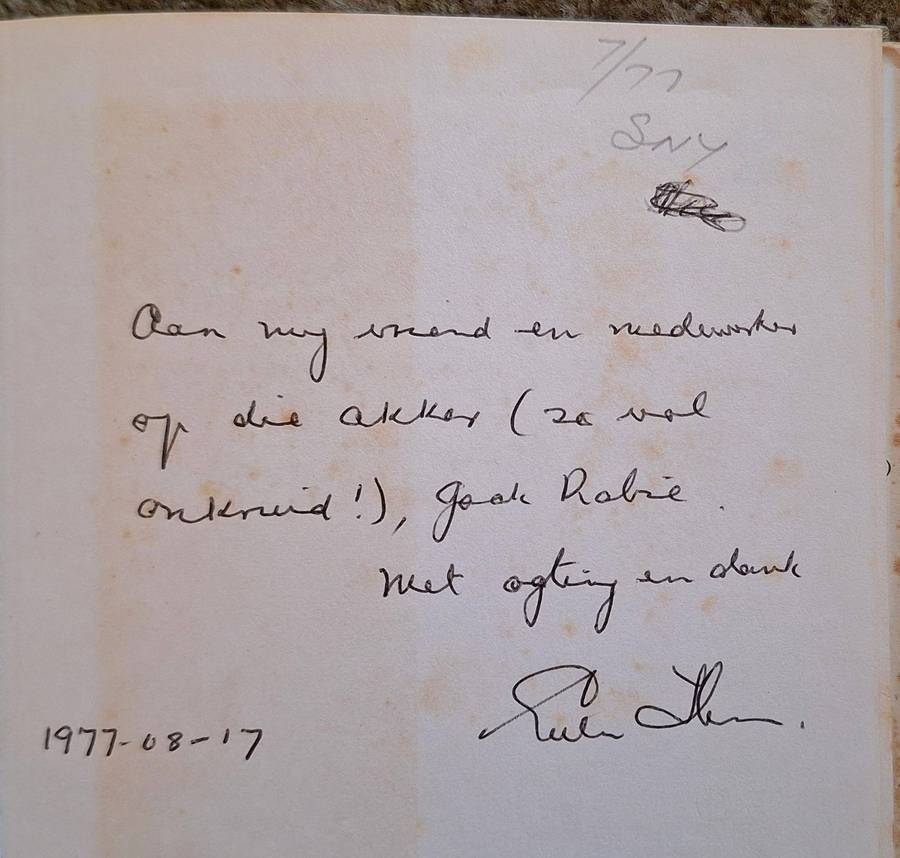 7/77
SNY
Aan my vriend en medewerker
op die akker (so vol
onkruid!), Jaak Rabie.
Met agting en dank
1977-08-17